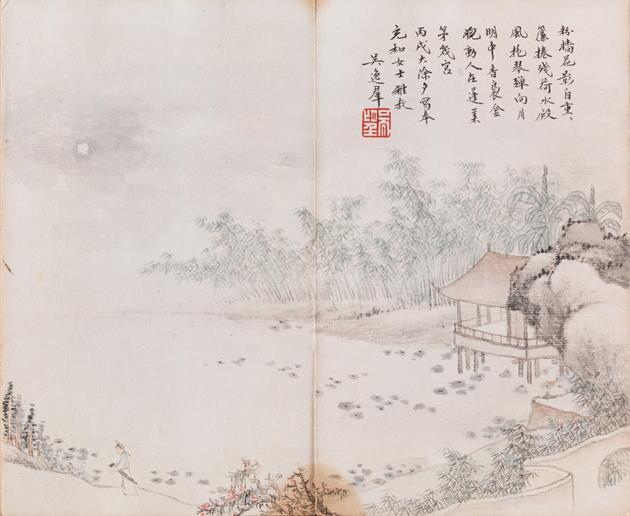 粉牆花影自重、
簾捲殘荷水殿
風抱琴彈向月
明中香裊金
猊動人在蓬萊
第幾宮
丙戌大除夕寫奉
充和女士雅教
吳逸羣